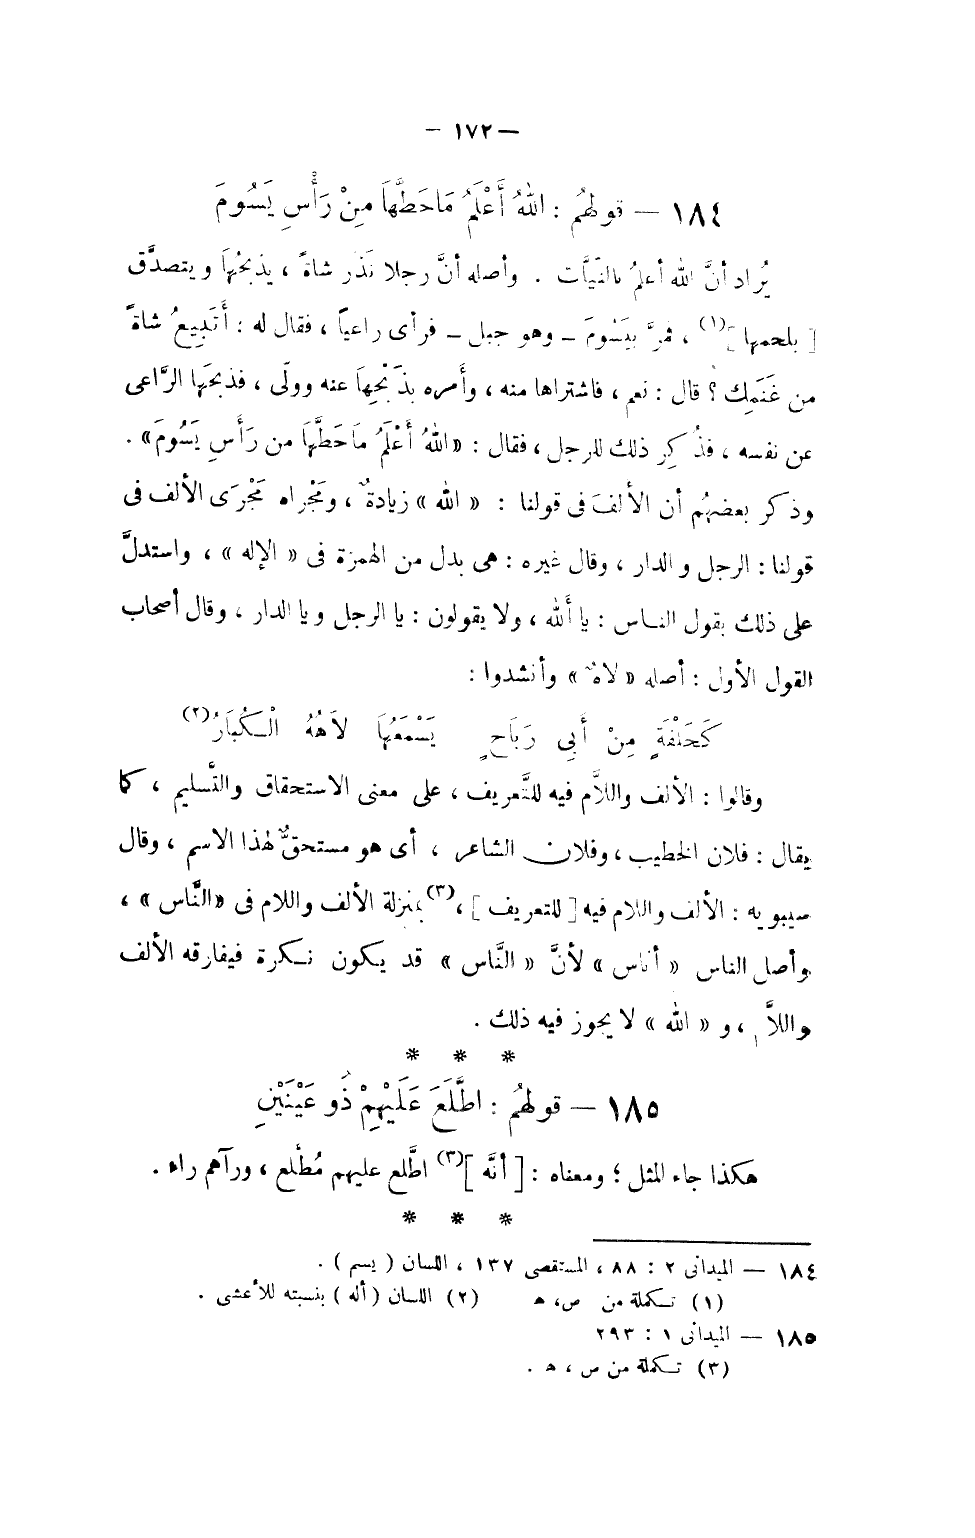 — ١٧٢ —
١٨٤ — قولهُم : اللهُ أَعْلَمُ مَاحَطَّهَا مِنْ رَأْسِ يَسُومَ
يُراد أنَّ الله أعلمُ بالنِّيَّات . وأصله أنَّ رجلا نَذَر شاةً ، يذبحُها ويتصدَّق
[ بلحمها ](١) ، فمرَّ بيَسُومَ – وهو جبل – فرأى راعياً ، فقال له : أَتَبِيعُ شاةً
من غَنَمِك ؟ قال : نعم ، فاشتراها منه ، وأَمره بذَبْحِها عنه وولّى ، فذبحَها الرَّاعى
عن نفسه ، فذُكِر ذلك للرجل ، فقال : «اللهُ أَعْلَمُ مَاحَطَّهَا من رَأْسِ يَسُومَ» .
وذكر بعضهُم أن الألفَ فى قولنا : « الله » زيادةٌ ، ومَجْراه مَجْرَى الألف فى
قولنا : الرجل و الدار ، وقال غيره : هى بدل من الهمزة فى « الإله » ، واستدلَّ
على ذلك بقول النـاس : يا أَلله ، ولا يقولون : يا الرجل و يا الدار ، وقال أصحاب
القول الأول : أصله « لاهٌ » وأنشدوا :
كَحَلْفَةٍ مِنْ أَبِى رَبَاحٍ يَسْمَعُهَا لاَهُهُ الْـكُبَارُ(٢)
وقالوا : الألف واللاَّم فيه للتَّعريف ، على معنى الاستحقاق والتَّسليم ، كما
يقال : فلان الخطيب ، وفلان الشاعر ، أى هو مستحقٌّ لهذا الاسم ، وقال
سيبويه : الألف واللام فيه [ للتعريف ] ،(٣) بمنزلة الألف واللام فى «النَّاس» ،
وأصل الناس « أناس » لأنَّ « النَّاس » قد يكون نـكرة فيفارقه الألف
واللاَّم ، و « الله » لا يجوز فيه ذلك .
* * *
١٨٥ — قولهُم : اطَّلَعَ عَلَيْهِمْ ذُو عَيْنَيْنِ
هكذا جاء المثل ؛ ومعناه : [ أنَّه ](٣) اطَّلع عليهم مُطَّلع ، ورآهم راء .
* * *
١٨٤ — الميدانى ٢ : ٨٨ ، المستقصى ١٣٧ ، اللسان ( يسم ) .
(١) تـكملة من ص، هـ (٢) اللسان (أله ) بنسبته للأعشى .
١٨٥ — الميدانى ١ : ٢٩٣
(٣) تـكملة من ص ، هـ .